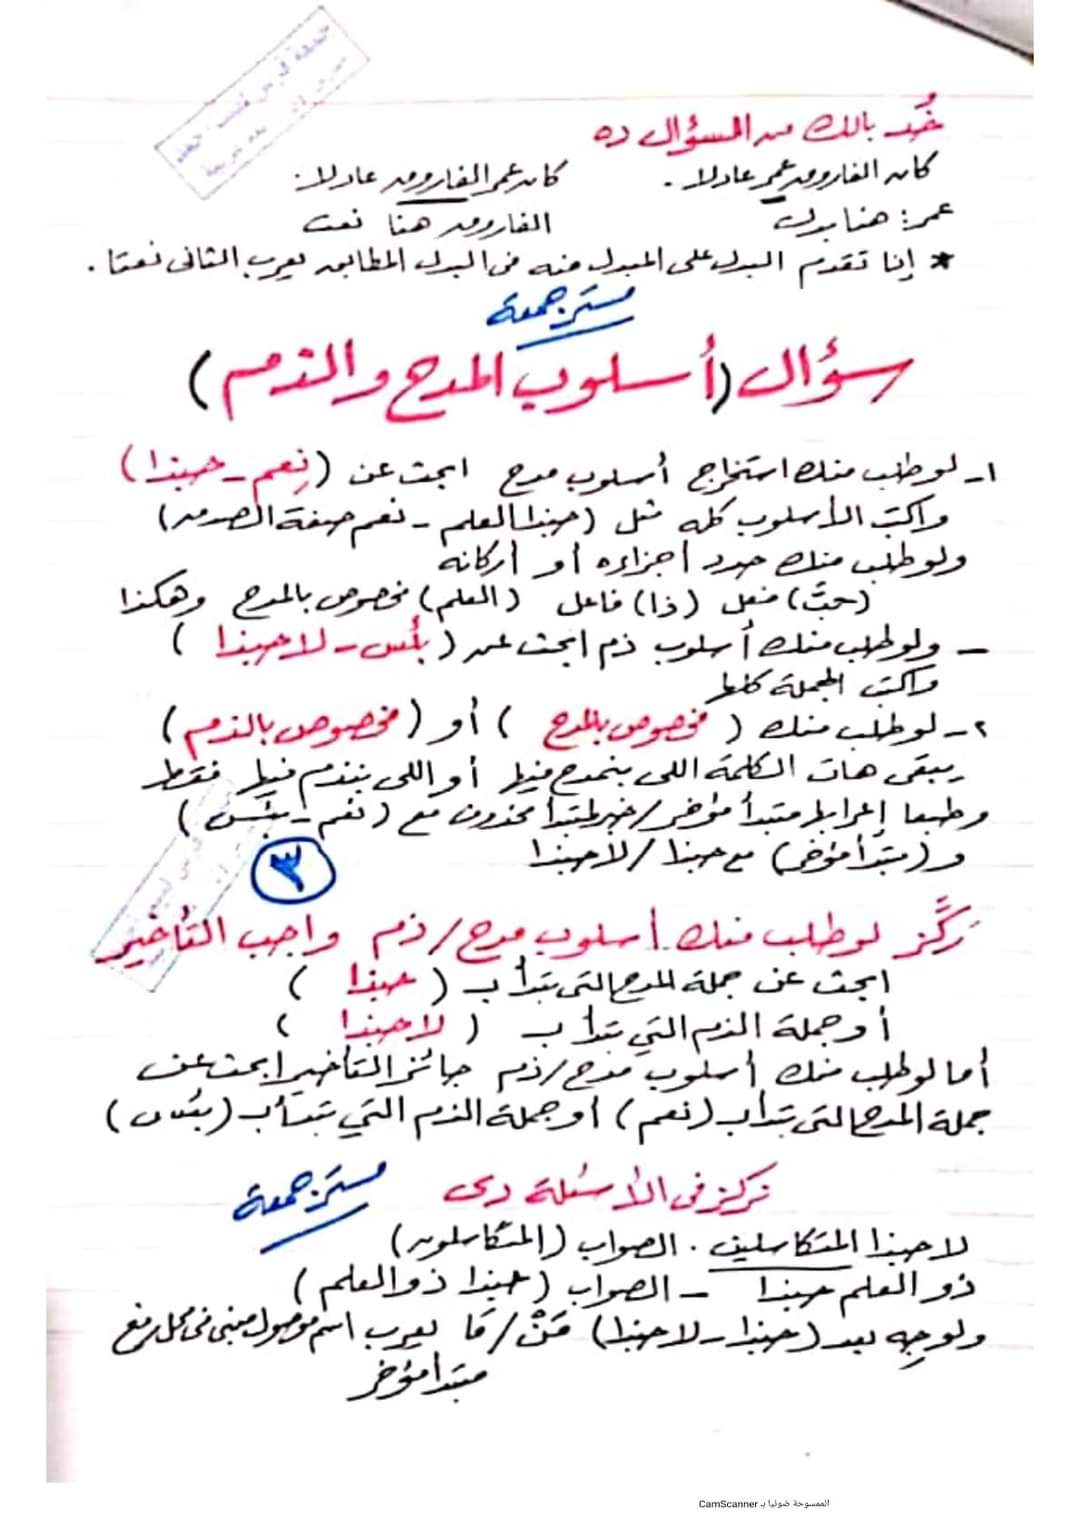 خُد بالك من السؤال ده
كان الفاروق عمر عادلا . كان عمر الفاروق عادلا .
عمر : هنا بدل الفاروق هنا نعت
* إذا تقدم البدل على المبدل منه في البدل المطابق يعرب الثاني نعتا .
مستر جمعة
سؤال (أسلوب المدح والذم)
١- لو طلب منك استخراج أسلوب مدح ابحث عن (نِعم - حبذا)
واكتب الأسلوب كله مثل (حبذا العلم - نعم صفة الصدق)
ولو طلب منك حدد أجزاءه أو أركانه
(حبَّ) فعل (ذا) فاعل (العلم) مخصوص بالمدح وهكذا
- ولو طلب منك أسلوب ذم ابحث عن (بئس - لا حبذا)
واكتب الجملة كلها
٢- لو طلب منك (مخصوص بالمدح) أو (مخصوص بالذم)
يبقى هات الكلمة اللى بنمدح فيها أو اللى بنذم فيها فقط
وطبعا إعرابها مبتدأ مؤخر / خبر لمبتدأ محذوف مع (نعم - بئس)
و (مبتدأ مؤخر) مع حبذا / لا حبذا
٣
ركَّز لو طلب منك أسلوب مدح / ذم واجب التأخير
ابحث عن جملة المدح التى تبدأ ب (حبذا)
أو جملة الذم التي تبدأ ب (لا حبذا)
أما لو طلب منك أسلوب مدح / ذم جائز التأخير ابحث عن
جملة المدح التى تبدأ ب (نعم) أو جملة الذم التي تبدأ ب (بئس)
نركز فى الأسئلة دى مستر جمعة
لا حبذا المتكاسلين . الصواب (المتكاسلون)
ذو العلم حبذا - الصواب (حبذا ذو العلم)
ولو جِه بعد (حبذا - لا حبذا) مَنْ / مَا يعرب اسم موصول مبنى فى محل رفع
مبتدأ مؤخر
الممسوحة ضوئيا بـ CamScanner